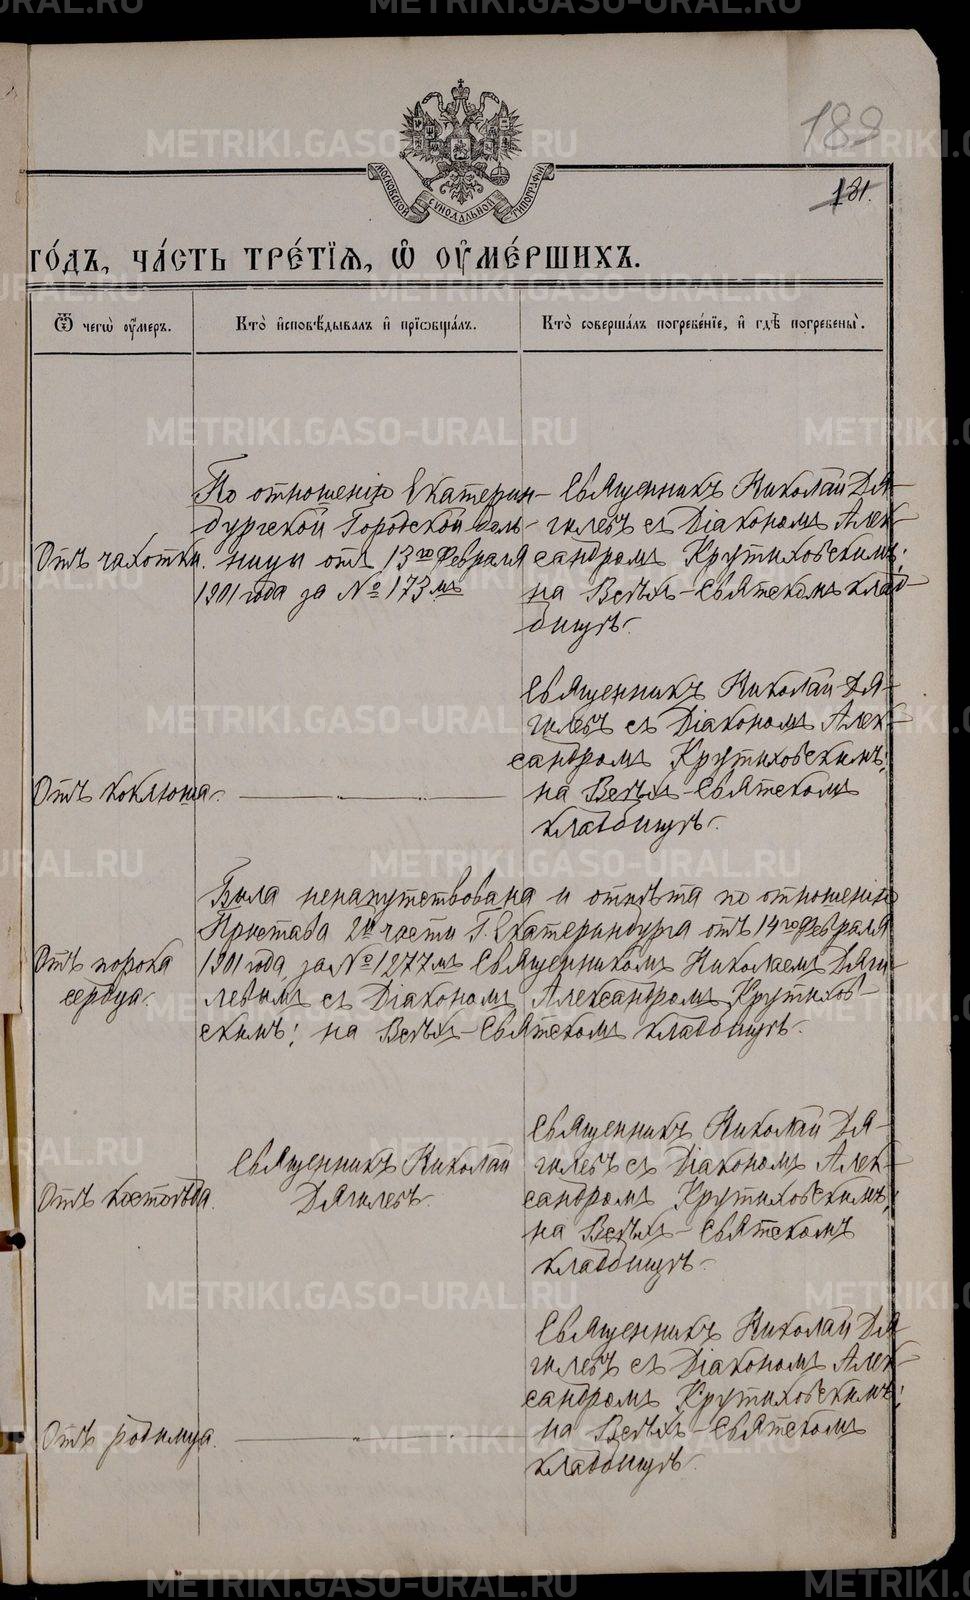 183
181.
МОСКОВСКОЙ СѴНОДАЛЬНОЙ ТИПОГРАФІИ
ГО́ДЪ, ЧА́СТЬ ТРЕ́ТІЯ, Ѽ ОУ҆МЕ́РШИХЪ.
Ѿ чегѡ̀ оу҆́меръ.
Кто̀ и҆сповѣ́дывалъ и҆ прїѡбща́лъ.
Кто̀ соверша́лъ погребе́нїе, и҆ гдѣ̀ погребены̀.
Отъ чахотки.
По отношенію Екатерин-
бургской Городской боль-
ницы отъ 13го Февраля
1901 года за № 173мъ
Священникъ Николай Дя-
гилевъ съ Діакономъ Алек-
сандромъ Крутиховскимъ;
на Всѣхъ-Святскомъ клад-
бищѣ.
Отъ коклюша.
Священникъ Николай Дя-
гилевъ съ Діакономъ Алек-
сандромъ Крутиховскимъ;
на Всѣхъ-Святскомъ
кладбищѣ.
Отъ порока
сердца.
Была ненапутствована и отпѣта по отношенію
Пристава 2й части Г. Екатеринбурга отъ 14го Февраля
1901 года за № 1277мъ Священникомъ Николаемъ Дяги-
левымъ съ Діакономъ Александромъ Крутихов-
скимъ; на Всѣхъ-Святскомъ кладбищѣ.
Отъ костоѣда.
Священникъ Николай
Дягилевъ.
Священникъ Николай Дя-
гилевъ съ Діакономъ Алек-
сандромъ Крутиховскимъ;
на Всѣхъ-Святскомъ
кладбищѣ.
Отъ родимца.
Священникъ Николай Дя-
гилевъ съ Діакономъ Алек-
сандромъ Крутиховскимъ;
на Всѣхъ-Святскомъ
кладбищѣ.
METRIKI.GASO-URAL.RU